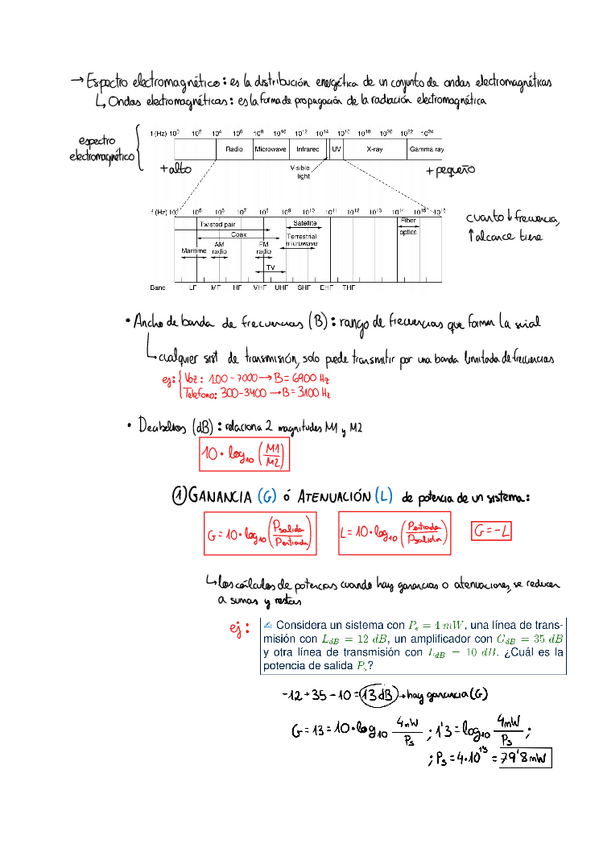 → Espectro electromagnético: es la distribución energética de un conjunto de ondas electromagnéticas
↳ Ondas electromagnéticas: es la forma de propagación de la radiación electromagnética
espectro electromagnético
f (Hz) 10⁰ 10² 10⁴ 10⁶ 10⁸ 10¹⁰ 10¹² 10¹⁴ 10¹⁶ 10¹⁸ 10²⁰ 10²² 10²⁴
Radio Microwave Infrared UV X-ray Gamma ray
+ alto
Visible light
+ pequeño
f (Hz) 10⁴ 10⁵ 10⁶ 10⁷ 10⁸ 10⁹ 10¹⁰ 10¹¹ 10¹² 10¹³ 10¹⁴ 10¹⁵ 10¹⁶
Twisted pair
Satellite
Fiber optics
Coax
Terrestrial microwave
Maritime
AM radio
FM radio
TV
Band LF MF HF VHF UHF SHF EHF THF
cuanto ↓ frecuencia,
↑ alcance tiene
• Ancho de banda de frecuencias (B): rango de frecuencias que forman la señal
↳ cualquier sist de transmisión, solo puede transmitir por una banda limitada de frecuencias
ej: { Voz: 100 - 7000 → B = 6900 Hz
Teléfono: 300 - 3400 → B = 3100 Hz
• Decibelios (dB): relaciona 2 magnitudes M1 y M2
10 · log₁₀ (M1/M2)
① GANANCIA (G) ó ATENUACIÓN (L) de potencia de un sistema:
G = 10 · log₁₀ (Psalida/Pentrada) L = 10 · log₁₀ (Pentrada/Psalida) G = -L
↳ los cálculos de potencias cuando hay ganancias o atenuaciones, se reducen
a sumas y restas
ej:
Considera un sistema con Pₑ = 4 mW, una línea de trans-
misión con L_dB = 12 dB, un amplificador con G_dB = 35 dB
y otra línea de transmisión con L_dB = 10 dB. ¿Cuál es la
potencia de salida Pₛ?
-12 + 35 - 10 = 13 dB → hay ganancia (G)
G = 13 = 10 · log₁₀ 4mW/Ps ; 1'3 = log₁₀ 4mW/Ps ;
; Ps = 4·10^1'3 = 79'8 mW